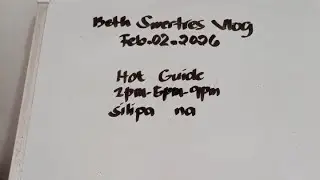 Beth Swertres Vlog
Feb.02.2026
Hot Guide
2pm-5pm-9pm
silipa na